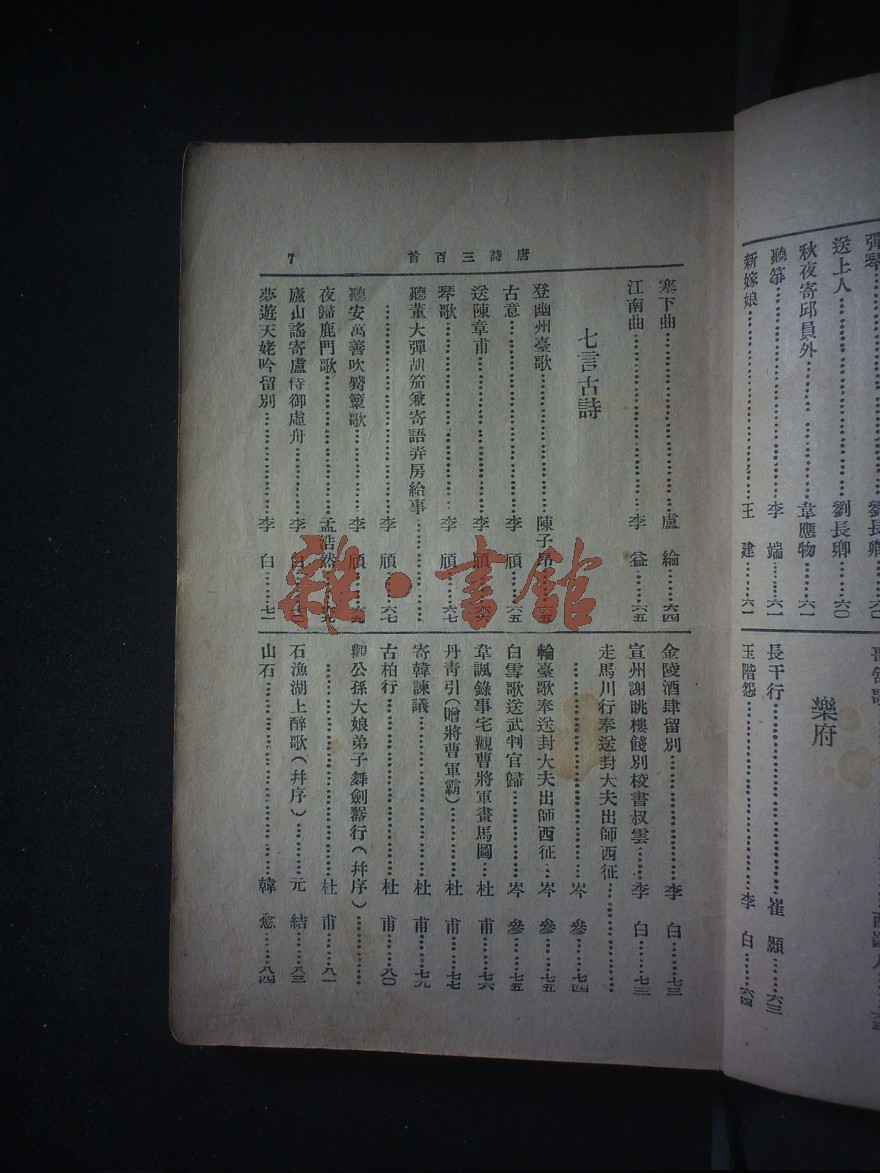 彈琴……劉長卿……六〇
送上人……劉長卿……六〇
秋夜寄邱員外……韋應物……六一
聽箏……李端……六一
新嫁娘……王建……六一
樂府
長干行……崔顥……六三
玉階怨……李白……六四
唐詩三百首
7
塞下曲……盧綸……六四
江南曲……李益……六五
七言古詩
登幽州臺歌……陳子昂
古意……李頎……六五
送陳章甫……李頎……六六
琴歌……李頎……六七
聽董大彈胡笳兼寄語弄房給事……
……李頎……六七
聽安萬善吹觱篥歌……李頎
夜歸鹿門歌……孟浩然
廬山謠寄盧侍御虛舟……李白
夢遊天姥吟留別……李白……七一
金陵酒肆留別……李白……七三
宣州謝眺樓餞別校書叔雲……李白……七三
走馬川行奉送封大夫出師西征……
……岑參……七四
輪臺歌奉送封大夫出師西征……岑參……七五
白雪歌送武判官歸……岑參……七五
韋諷錄事宅觀曹將軍畫馬圖……杜甫……七六
丹靑引(贈將曹軍霸)……杜甫……七七
寄韓諫議……杜甫……七九
古柏行……杜甫……八〇
觀公孫大娘弟子舞劍器行(幷序)……
……杜甫……八一
石漁湖上醉歌(幷序)……元結……八三
山石……韓愈……八四
雜·書館